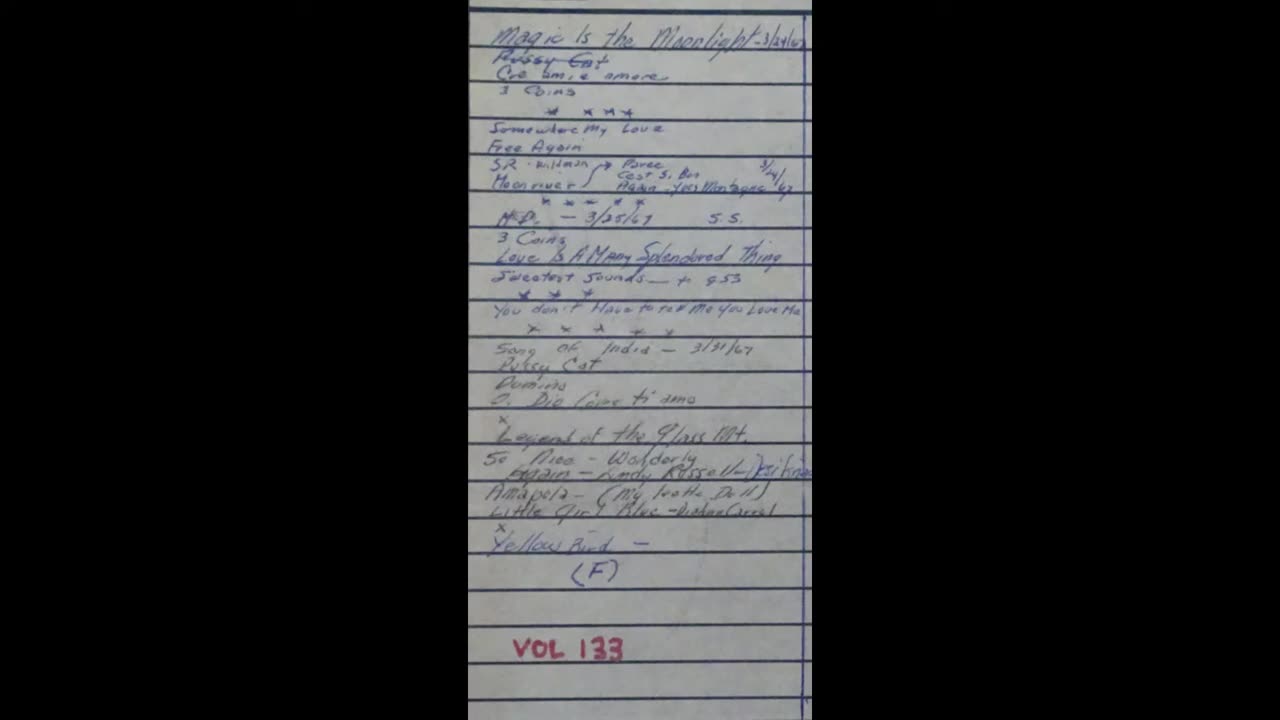 Magic Is the Moonlight - 3/24/67
Pussy Cat
amore
3 Coins
x x x x
Somewhere My Love
Free Again
S.R.
Moon river Again - Yves Montagne 3/24/67
x x x x x
- 3/25/67 S.S.
3 Coins
Love Is A Many Splendored Thing
Sweetest Sounds - +
x x x
You don't Have to tell Me You Love Me
x x x x x
Song of India - 3/31/67
Pussy Cat
Domino
O. Dio Come ti amo
x
Legend of the Glass Mt.
So Nice - Wanderly
Again - Andy Russell -
Amapola - (My Little Doll)
Little Girl Blue -
x
Yellow Bird -
(F)
VOL 133